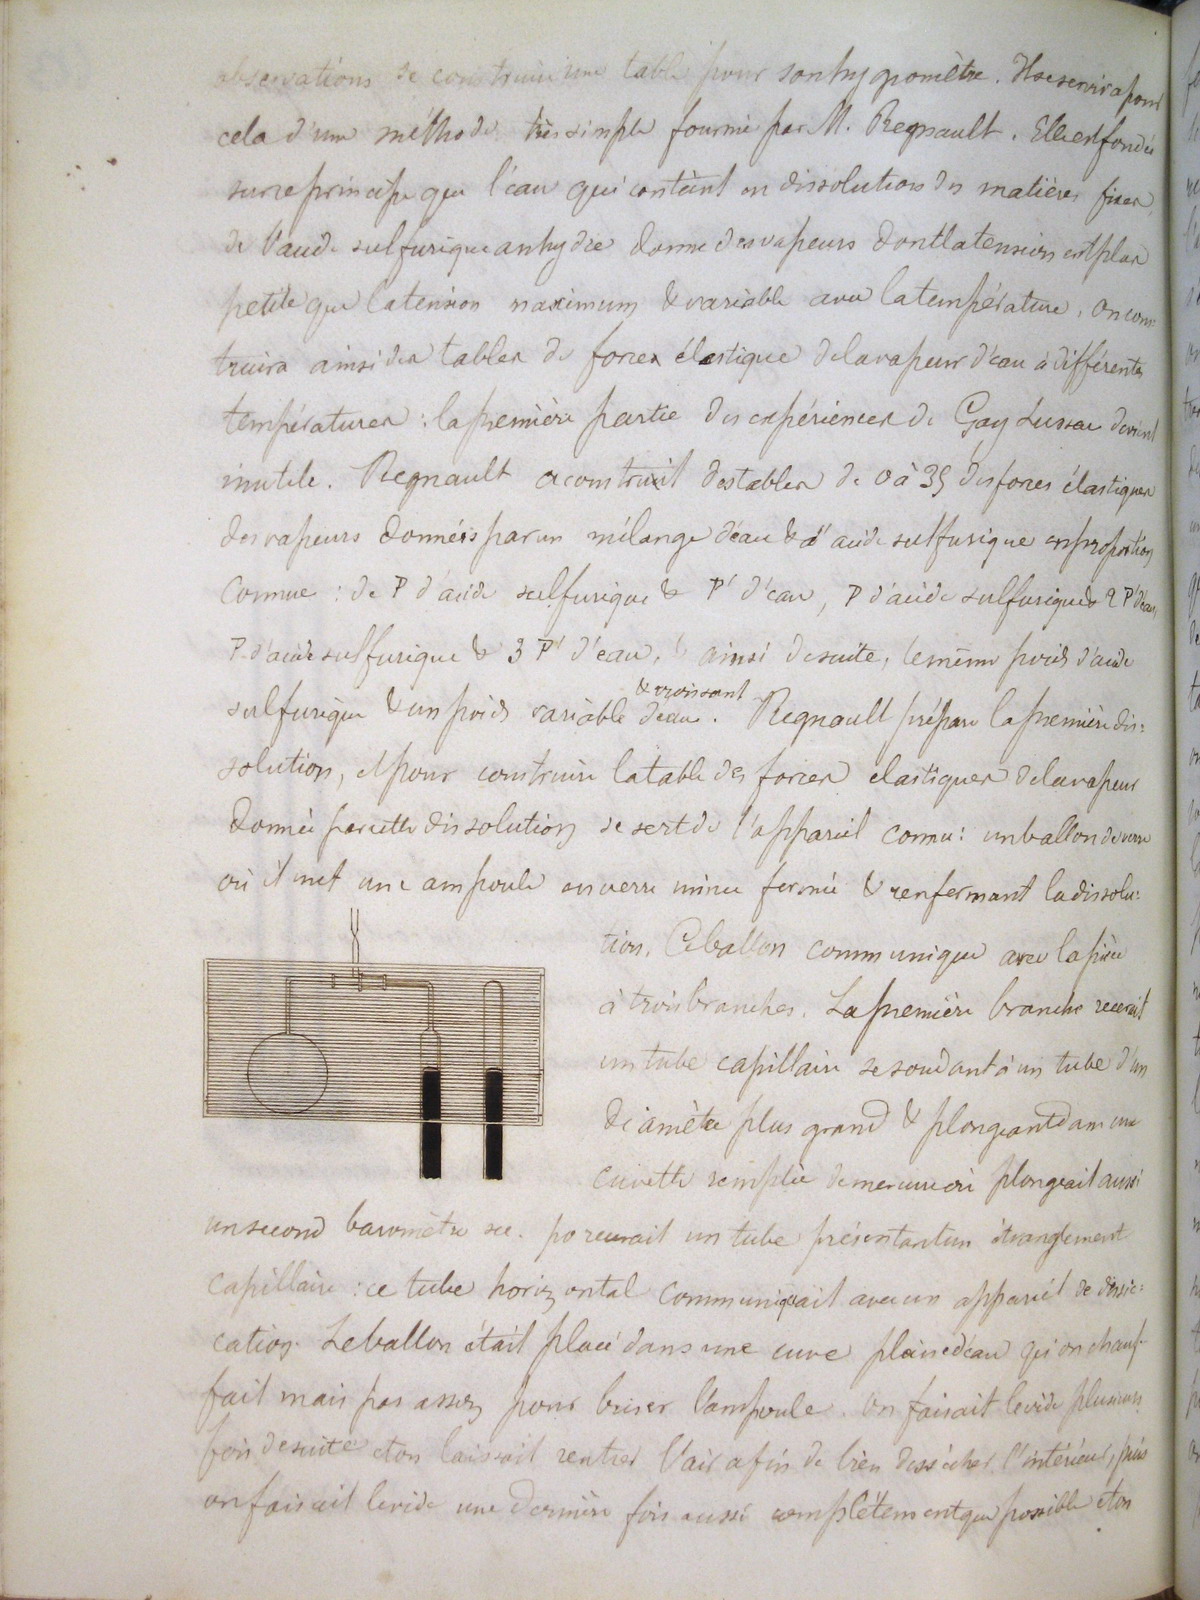 observations de construire une table pour son hygromètre. Il se servira pour
cela d'une méthode très simple fournie par M. Regnault. Elle est fondée
sur ce principe que l'eau qui contient en dissolution des matières fixes,
de l'acide sulfurique anhydre donne des vapeurs dont la tension est plus
petite que la tension maximum & variable avec la température, on cons:
truira ainsi des tables de forces élastique de la vapeur d'eau à différentes
températures : la première partie des expériences de Gay Lussac devient
inutile. Regnault a construit des tables de 0 à 35 des forces élastiques
des vapeurs données par un mélange d'eau & d'acide sulfurique en proportion
connue : de P d'acide sulfurique & P' d'eau, P d'acide sulfurique & 2 P' d'eau,
P d'acide sulfurique & 3 P' d'eau, & ainsi de suite, le même poids d'acide
& croissant
sulfurique & un poids variable d'eau. Regnault prépare la première dis:
solution, et pour construire la table des forces elastiques de la vapeur
donnée par cette dissolution se sert de l'appareil connu : un ballon de verre
où il met une ampoule en verre mince fermée & renfermant la dissolu:
tion. Ce ballon communique avec la pièce
à trois branches. La première branche recevait
un tube capillaire se soudant à un tube d'un
diamètre plus grand & plongeant dans une
cuvette remplie de mercure où plongeait aussi
un second baromètre sec. recevait un tube présentant un étranglement
capillaire : ce tube horizontal communiquait avec un appareil de dessic:
cation. Le ballon était placé dans une cuve pleine d'eau qu'on chauf-
fait mais pas assez pour briser l'ampoule. On faisait le vide plusieurs
fois de suite et on laissait rentrer l'air afin de bien dessécher l'intérieur, puis
on faisait le vide une dernière fois aussi complètement que possible et on